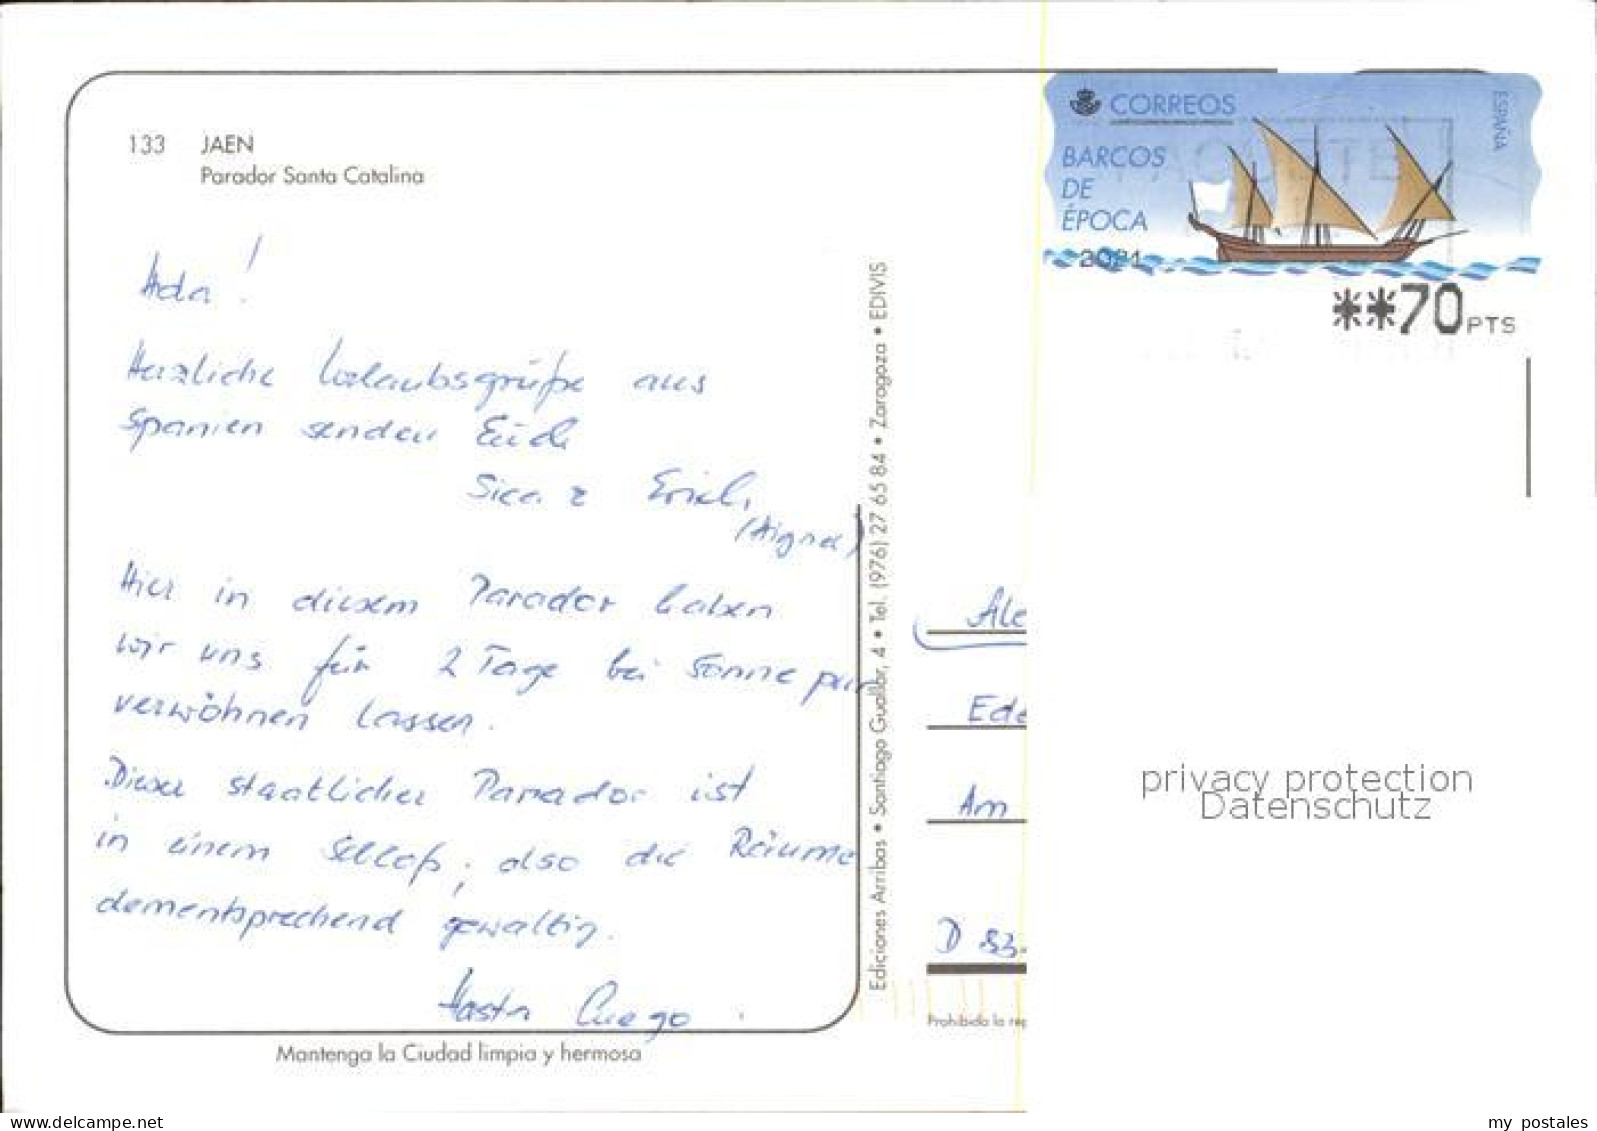 133 JAEN
Parador Santa Catalina
Hola!
Herzliche Urlaubsgrüße aus
Spanien senden Euch
& Erich
(Aigner)
Hier in diesem Parador haben
wir uns für 2 Tage bei Sonne pur
verwöhnen lassen.
Dieser staatlicher Parador ist
in einem Schloß, also die Räume
dementsprechend gewaltig.
Hasta Luego.
Mantenga la Ciudad limpia y hermosa
Ediciones Arribas • Santiago Guallar, 4 • Tel. (976) 27 65 84 • Zaragoza • EDIVIS
CORREOS
ESPAÑA
BARCOS
DE
ÉPOCA
2021
**70 PTS
Ale
Ede
Am
D 83
Prohibida la rep
privacy protection
Datenschutz
www.delcampe.net
my_postales